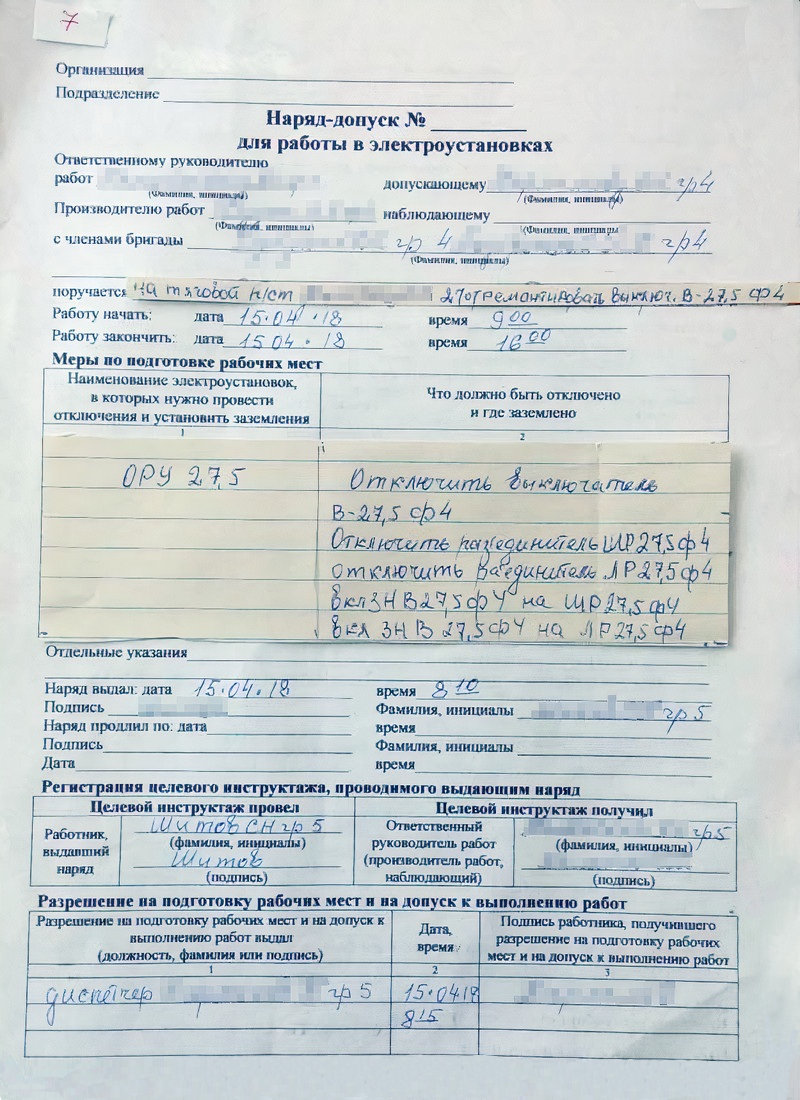 7
Организация
Подразделение
Наряд-допуск №
для работы в электроустановках
Ответственному руководителю
работ допускающему гр4
(Фамилия, инициалы) (Фамилия, инициалы)
Производителю работ наблюдающему
(Фамилия, инициалы) (Фамилия, инициалы)
с членами бригады гр 4 гр4
(Фамилия, инициалы)
поручается на тяговой п/ст отремонтировать выключ. В-27,5 ф4
Работу начать: дата 15.04.18 время 9 00
Работу закончить: дата 15 04.18 время 16 00
Меры по подготовке рабочих мест
Наименование электроустановок, в которых нужно провести отключения и установить заземления
Что должно быть отключено и где заземлено
1 2
ОРУ 27,5 Отключить выключатель
В-27,5 ф4
Отключить разъединитель ШР27,5ф4
Отключить ра'единитель ЛР27,5ф4
вкл ЗН В27,5ф4 на ШР27,5ф4
вкл ЗН В 27,5ф4 на ЛР27,5ф4
Отдельные указания
Наряд выдал: дата 15.04.18 время 8 10
Подпись Фамилия, инициалы гр 5
Наряд продлил по: дата время
Подпись Фамилия, инициалы
Дата время
Регистрация целевого инструктажа, проводимого выдающим наряд
Целевой инструктаж провел Целевой инструктаж получил
Работник, выдавший наряд
Шитов СН гр 5
(фамилия, инициалы)
Шитов
(подпись)
Ответственный руководитель работ (производитель работ, наблюдающий)
гр5
(фамилия, инициалы)
(подпись)
Разрешение на подготовку рабочих мест и на допуск к выполнению работ
Разрешение на подготовку рабочих мест и на допуск к выполнению работ выдал (должность, фамилия или подпись)
Дата, время
Подпись работника, получившего разрешение на подготовку рабочих мест и на допуск к выполнению работ
1 2 3
диспетчер гр 5 15.0418
8 15